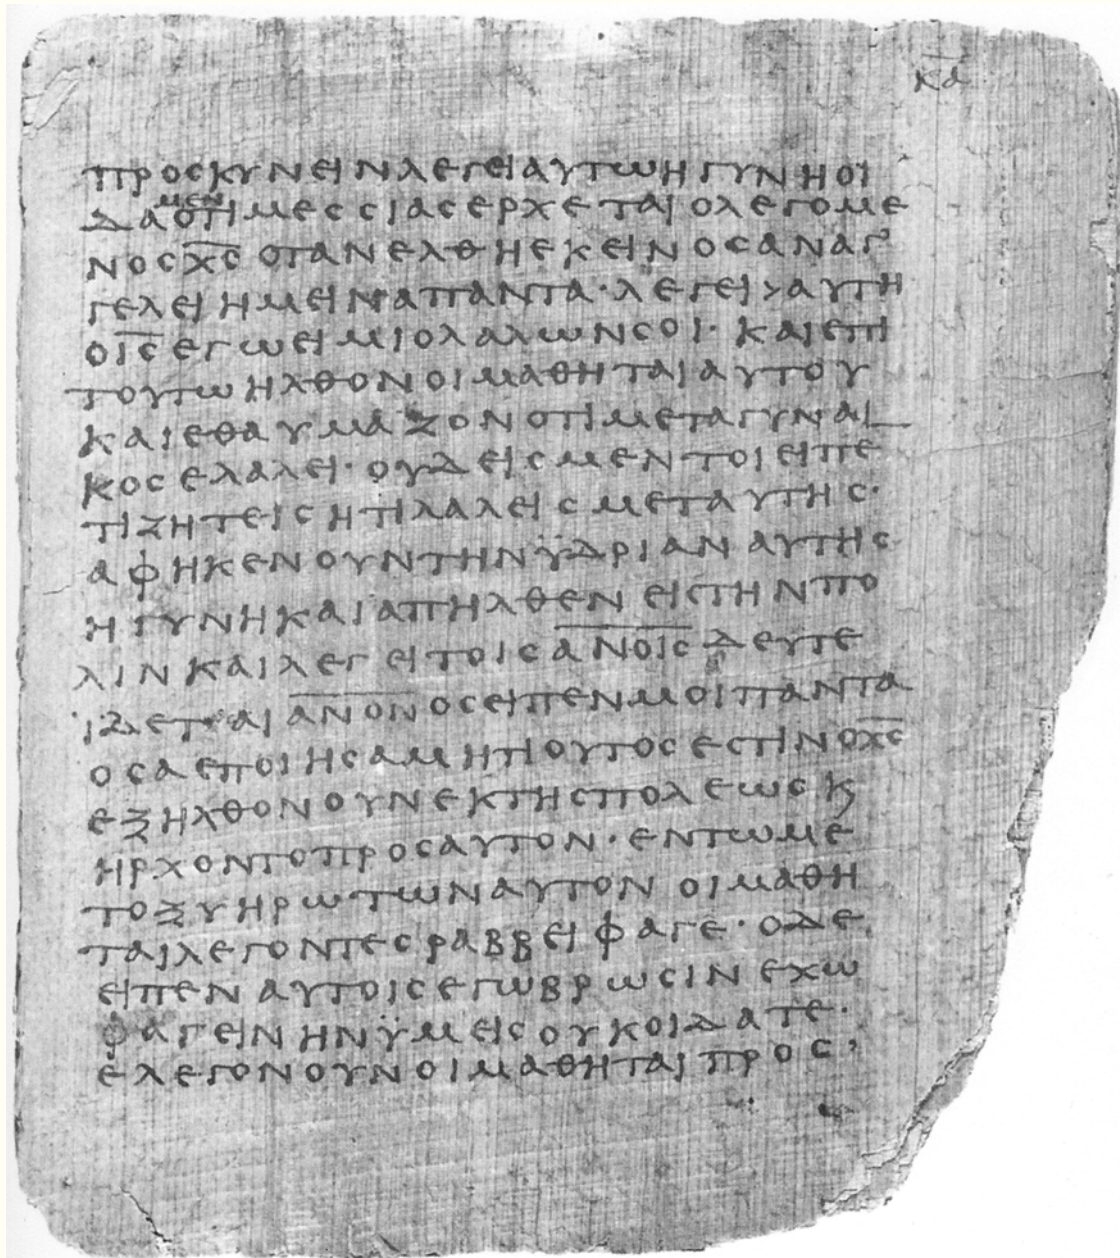 κ̅α̅
προσκυνεινλεγειαυτωηγυνηοι
μεν
δαοτιμεσσιασερχεταιολεγομε
νοσχ̅σ̅οτανελθηεκεινοσαναγ᾽
γελειημειναπαντα·λεγει>αυτη
οι̅σ̅εγωειμιολαλωνσοι·καιεπι
τουτωηλθονοιμαθηταιαυτου
καιεθαυμαζονοτιμεταγυναι
κοσελαλει·ουδεισμεντοιειπε
τιζητεισητιλαλεισμεταυτησ·
αφηκενουντηνϋδριαναυτησ
ηγυνηκαιαπηλθενειστηνπο
λινκαιλεγειτοισα̅ν̅ο̅ι̅σ̅δευτε
ϊδεται α̅ν̅ο̅ν̅οσειπενμοιπαντα
οσαεποιησαμητιουτοσεστινοχ̅σ̅
εξηλθονουνεκτησπολεωσϗ
ηρχοντοπροσαυτον·εντωμε
τοξυηρωτωναυτονοιμαθη
ταιλεγοντεσραββειφαγε·οδε
ειπεναυτοισεγωβρωσινεχω
φαγεινηνϋμεισουκοιδατε·
ελεγονουνοιμαθηταιπροσ᾽